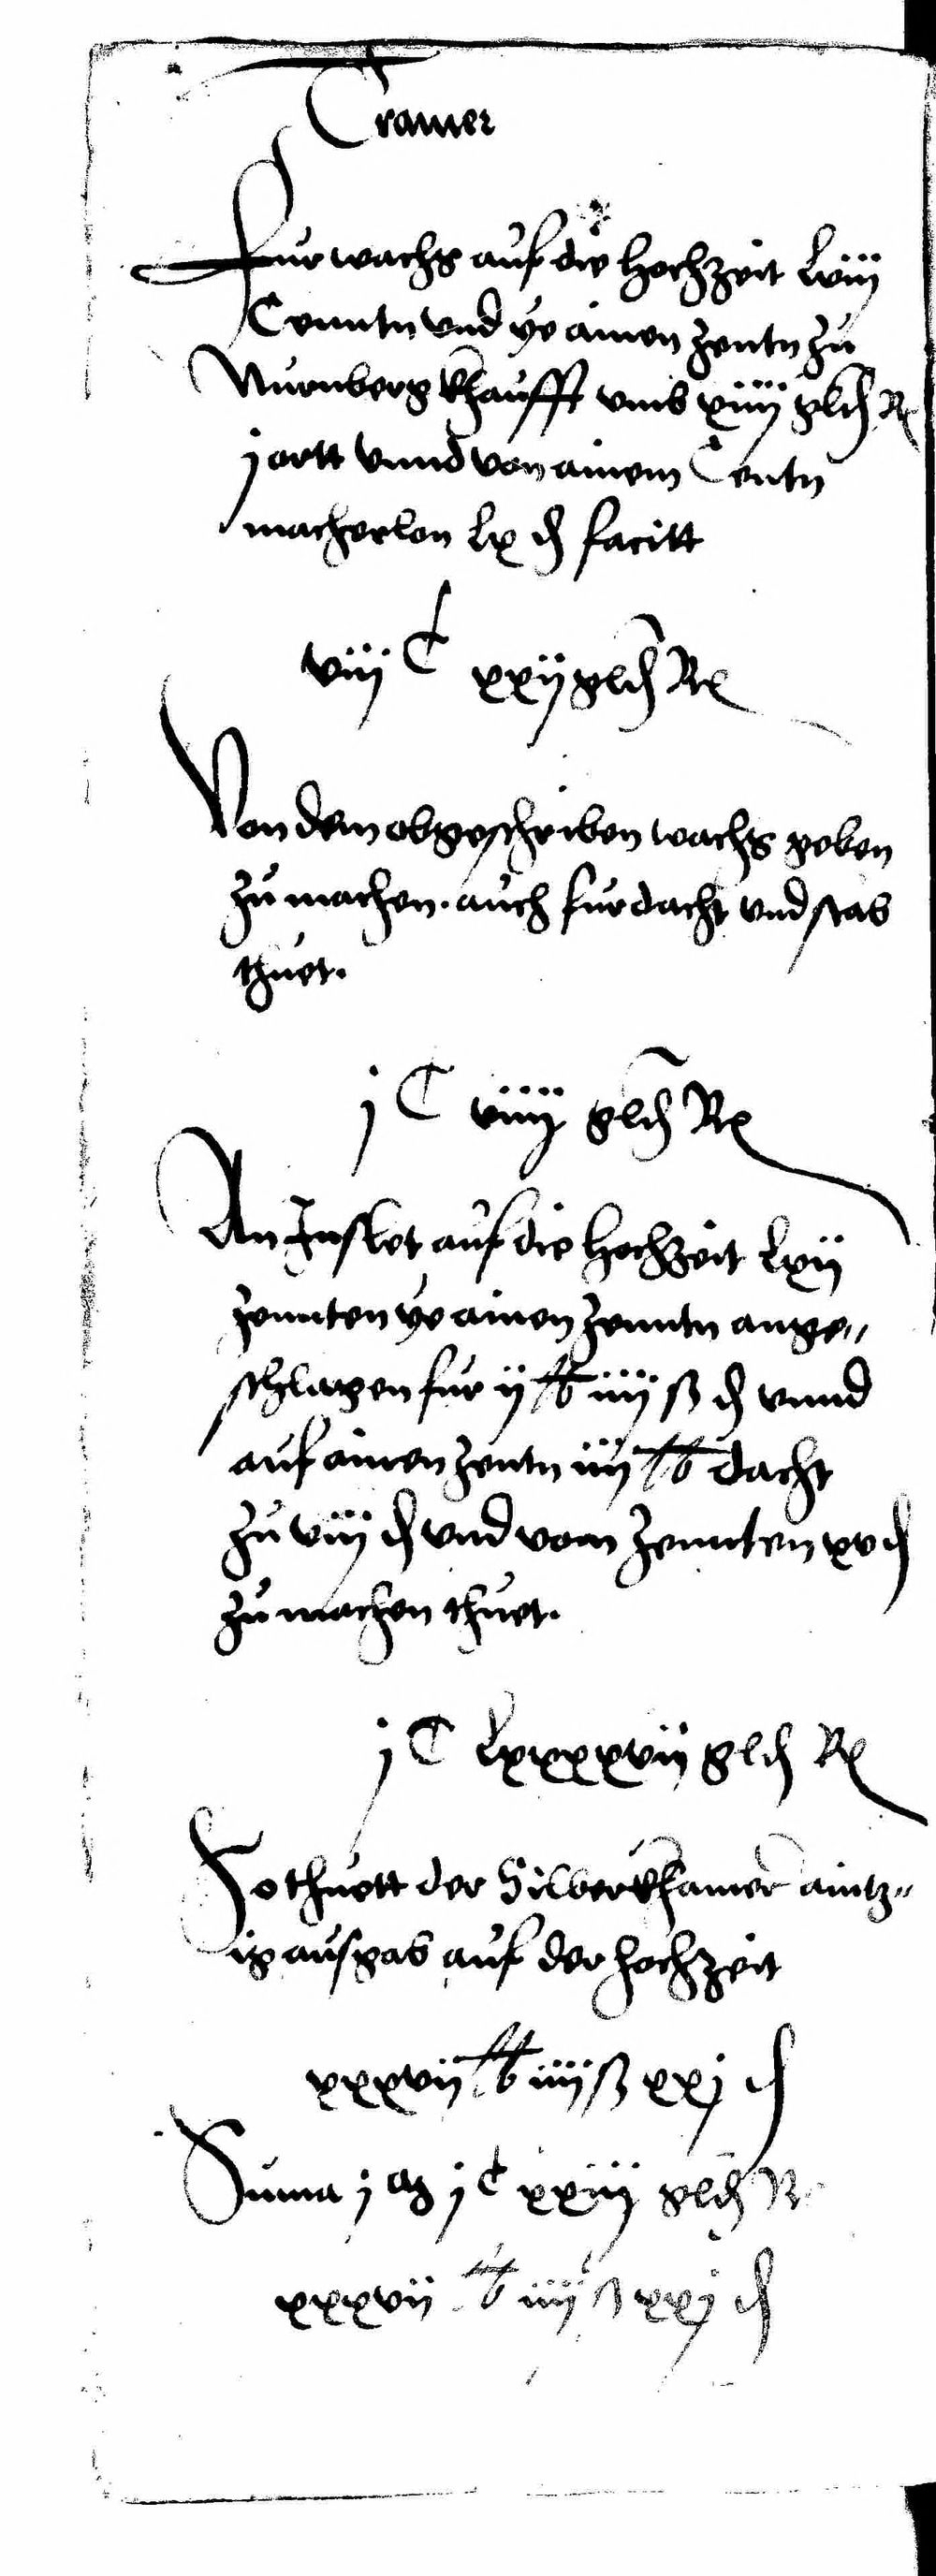 Cramer
Fur wachs auf die hochzeit lviii
Cenntn und ye ainen zentn zu
Nurnberg khaufft umb xiiii gld R
j ortt unnd von ainem Centn
macherlon lx d facitt
viii C xxii gld R
Von dem obgeschriben wachs geben
zu machen. auch fur dacht und stab
thuet.
j C viiii gld R
An Inslet auf die hochzeit lxii
zennten ye ainen zenntn ange„
schlagen fur ii lb iiii ß d unnd
auf ainen zentn iiii lb dacht
zu viii d und vom zennten xv d
zu machen thuet.
j C lxxxxvii gld R
So thuett der Silberkhamer aintz„
ig ausgab auf der hochzeit
xxxvii lb iiii ß xxj d
Suma j M j C xxviii gld R
xxxvii lb iiii ß xxj d